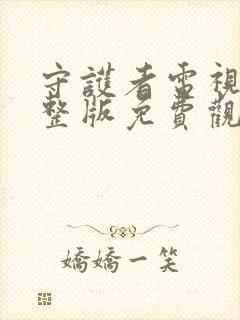 守護者電視
整版免費觀
嬌嬌一笑